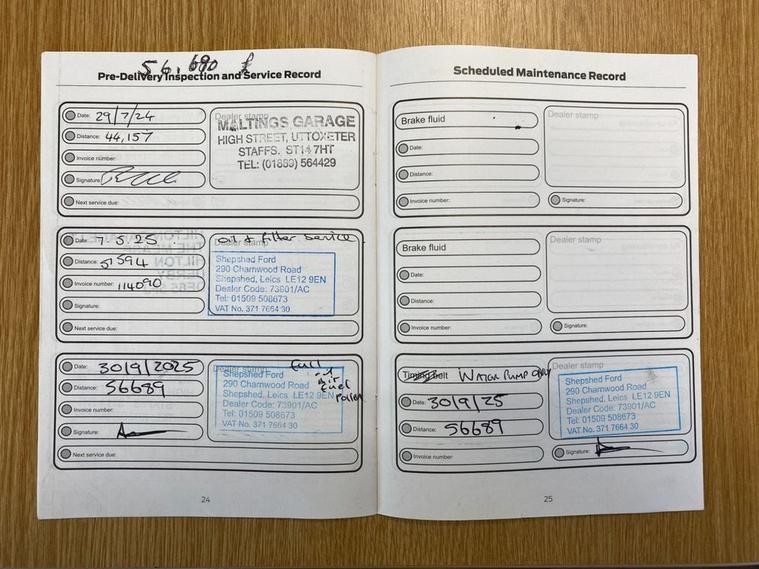 56,690
Pre-Delivery Inspection and Service Record
Date: 29/7/24
Distance: 44,157
Invoice number:
Signature:
Next service due:
Dealer stamp
MALTINGS GARAGE
HIGH STREET, UTTOXETER
STAFFS. ST14 7HT
TEL: (01889) 564429
Date: 7.5.25
Distance: 51594
Invoice number: 114090
Signature:
Next service due:
Dealer stamp
oil & filter service
Shepshed Ford
290 Charnwood Road
Shepshed, Leics LE12 9EN
Dealer Code: 73901/AC
Tel: 01509 508673
VAT No. 371 7664 30
Date: 30/9/2025
Distance: 56689
Invoice number:
Signature:
Next service due:
Dealer stamp
Full
oil
Air
Fuel
Pollen
Shepshed Ford
290 Charnwood Road
Shepshed, Leics LE12 9EN
Dealer Code: 73901/AC
Tel: 01509 508673
VAT No. 371 7664 30
24
Scheduled Maintenance Record
Brake fluid
Date:
Distance:
Invoice number:
Dealer stamp
Signature:
Brake fluid
Date:
Distance:
Invoice number:
Dealer stamp
Signature:
Timing belt Water Pump only
Date: 30/9/25
Distance: 56689
Invoice number:
Dealer stamp
Shepshed Ford
290 Charnwood Road
Shepshed, Leics LE12 9EN
Dealer Code: 73901/AC
Tel: 01509 508673
VAT No. 371 7664 30
Signature:
25